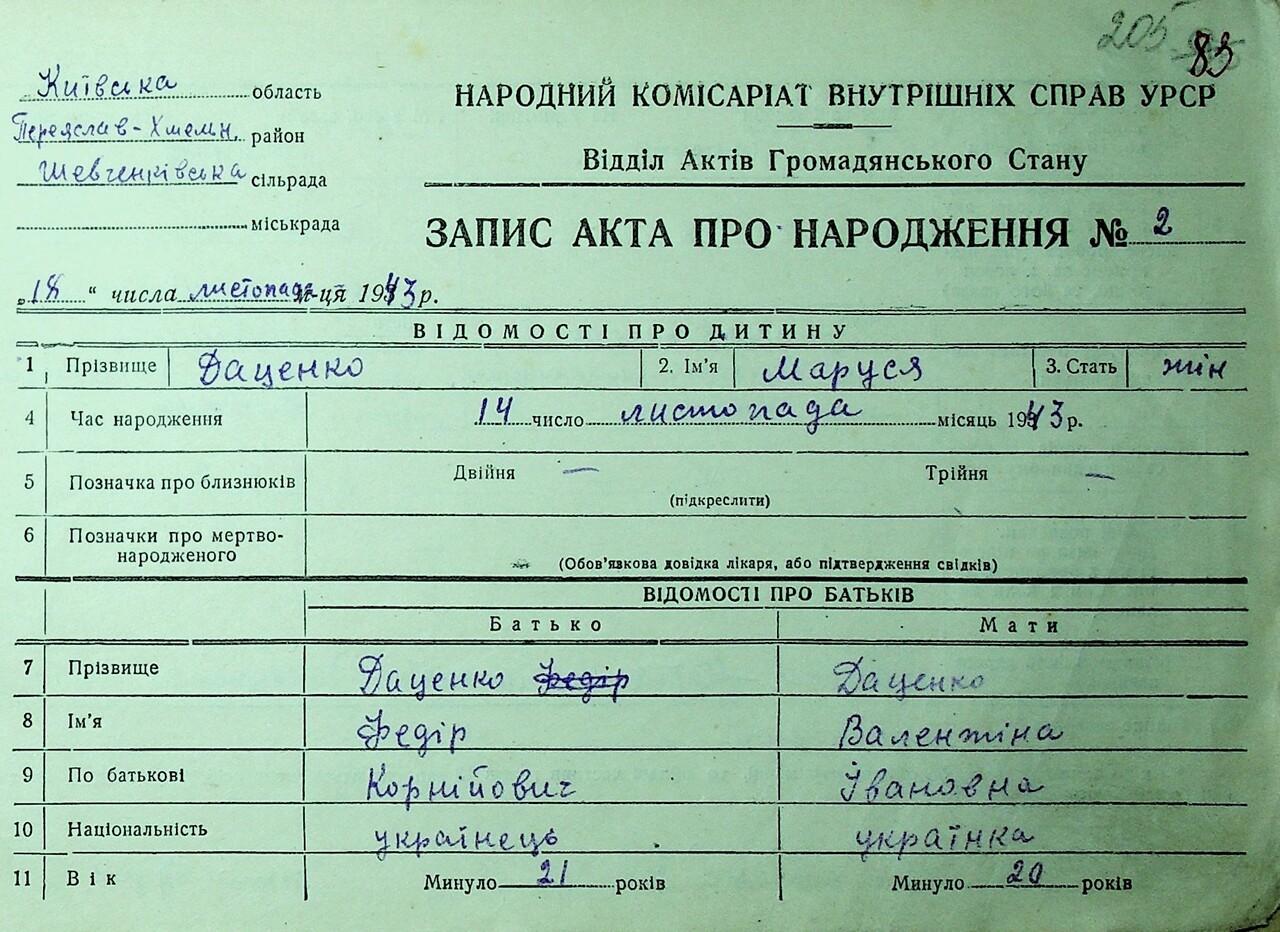 205 83
Київська область
Переяслав-Хмельн. район
Шевченківська сільрада
міськрада
НАРОДНИЙ КОМІСАРІАТ ВНУТРІШНІХ СПРАВ УРСР
Відділ Актів Громадянського Стану
ЗАПИС АКТА ПРО НАРОДЖЕННЯ № 2
„18“ числа листопада м-ця 1943 р.
ВІДОМОСТІ ПРО ДИТИНУ
1 Прізвище Даценко 2. Ім'я Маруся 3. Стать жін
4 Час народження 14 число листопада місяць 1943 р.
5 Позначка про близнюків Двійня — Трійня —
(підкреслити)
6 Позначки про мертво-
народженого
(Обов'язкова довідка лікаря, або підтвердження свідків)
ВІДОМОСТІ ПРО БАТЬКІВ
Батько Мати
7 Прізвище Даценко Федір Даценко
8 Ім'я Федір Валентіна
9 По батькові Корнійович Івановна
10 Національність українець українка
11 Вік Минуло 21 років Минуло 20 років